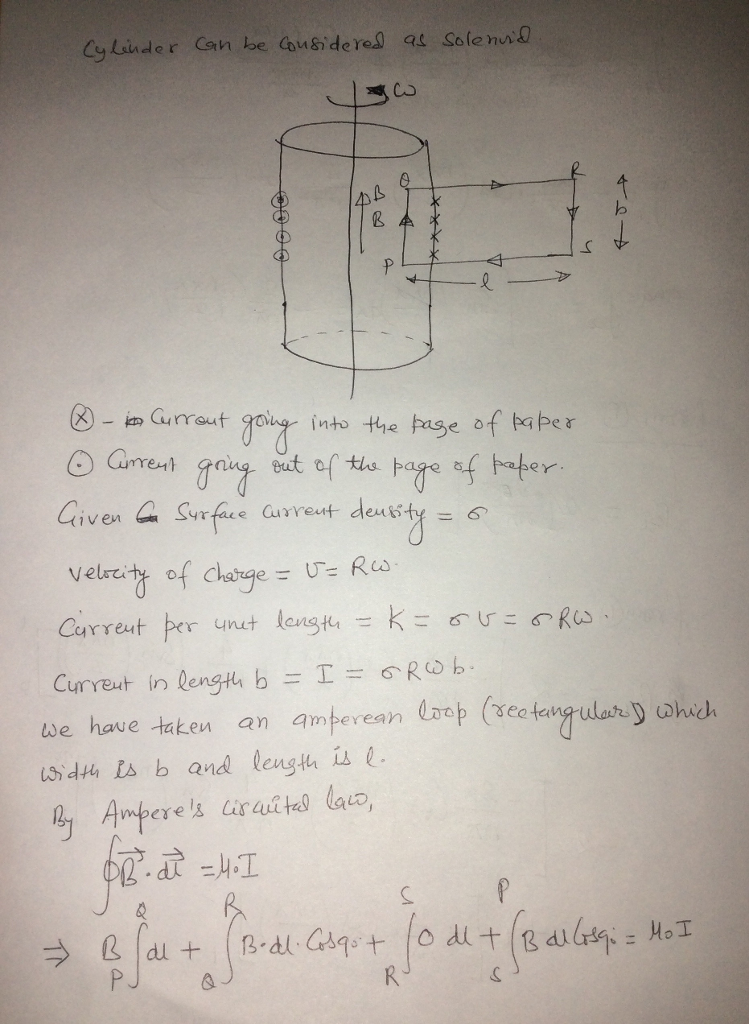 Cylinder can be considered as solenoid
ω
Q
R
B
B
b
P
S
l
⊗ - Current going into the page of paper
⊙ Current going out of the page of paper.
Given Surface current density = σ
velocity of charge = v = Rω.
Current per unit length = K = σv = σRω.
Current in length b = I = σRωb.
we have taken an amperean loop (rectangular) which
width is b and length is l.
By Ampere's circuital law,
∮B⃗.dl⃗ = μ₀I
⇒ B ∫_P^Q dl + ∫_Q^R B.dl.Cos90 + ∫_R^S 0 dl + ∫_S^P B dl Cos90 = μ₀I